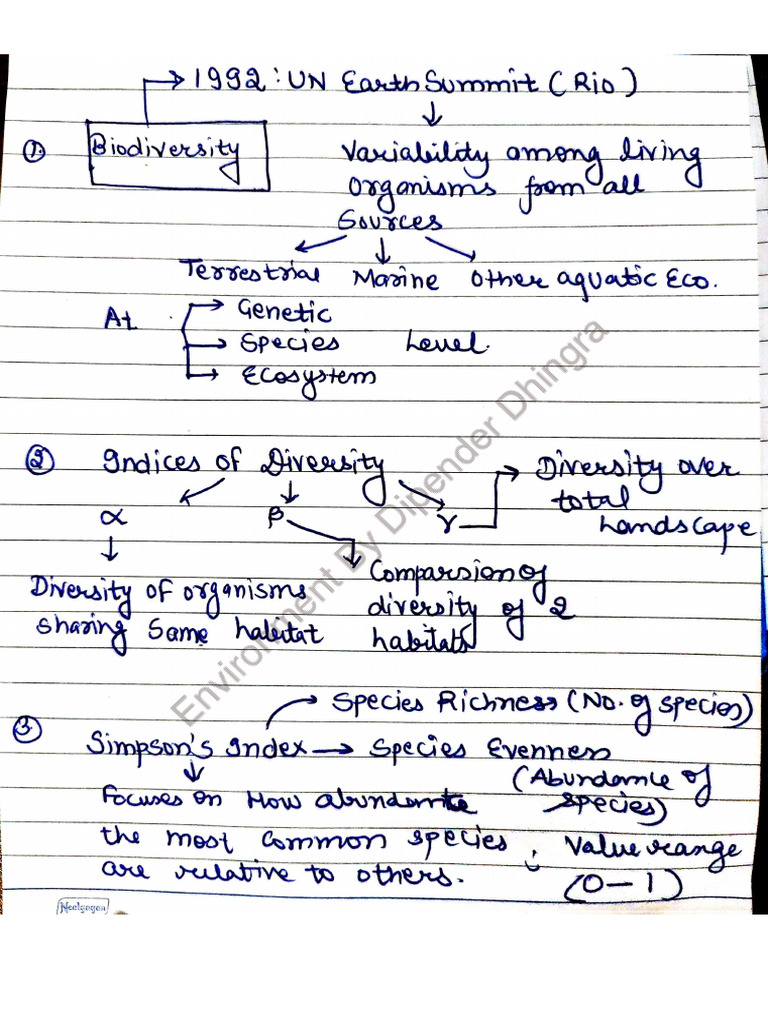 1992: UN Earth Summit (Rio)
① Biodiversity
Variability among living
organisms from all
Sources
Terrestrial Marine Other aquatic Eco.
At
Genetic
Species Level.
Ecosystem
② Indices of Diversity
Diversity over
total
Landscape
α β γ
Diversity of organisms
sharing same habitat
Comparsion of
diversity of 2
habitats
Species Richness (No. of species)
③ Simpson's Index → Species Evenness
(Abundance of
species)
Focuses on How abundemt
the most common species
are relative to others.
; Value range
(0-1)
Neelgagan
Environment By Dipender Dhingra